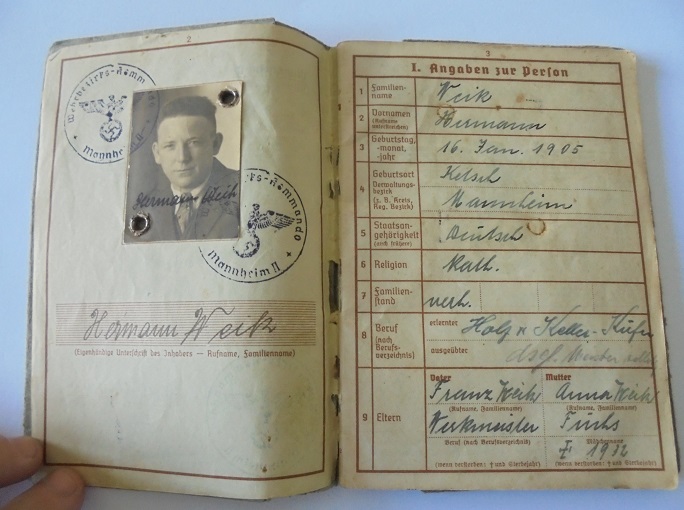 2
Wehrbezirks-Komm
Mannhe
Hermann Weik
s-Kommando
Mannheim II
Hermann Weik
(Eigenhändige Unterschrift des Inhabers — Rufname, Familienname)
3
I. Angaben zur Person
1 Familien-
name
Weik
2 Vornamen
(Rufname
unterstreichen)
Hermann
3 Geburtstag,
-monat,
-jahr
16. Jan. 1905
4 Geburtsort
Verwaltungs-
bezirk
(z. B. Kreis,
Reg. Bezirk)
Ketsch
Mannheim
5 Staatsan-
gehörigkeit
(auch frühere)
Deutsch
6 Religion
Kath.
7 Familien-
stand
verh.
8 Beruf
(nach
Berufs-
verzeichnis)
erlernter Holz u Keller-Küfer
ausgeübter dsgl.
9 Eltern
Vater Mutter
Franz Weik Anna Weik
(Rufname, Familienname) (Rufname, Familienname)
Werkmeister Fuchs
Beruf (nach Berufsverzeichnis) Mädchenname
† 1932
(wenn verstorben: † und Sterbejahr) (wenn verstorben: † und Sterbejahr)